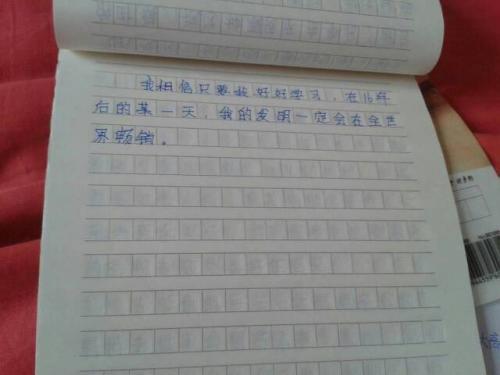 我相信只要我好好学习，在16年
后的某一天，我的发明一定会在全世
界畅销。